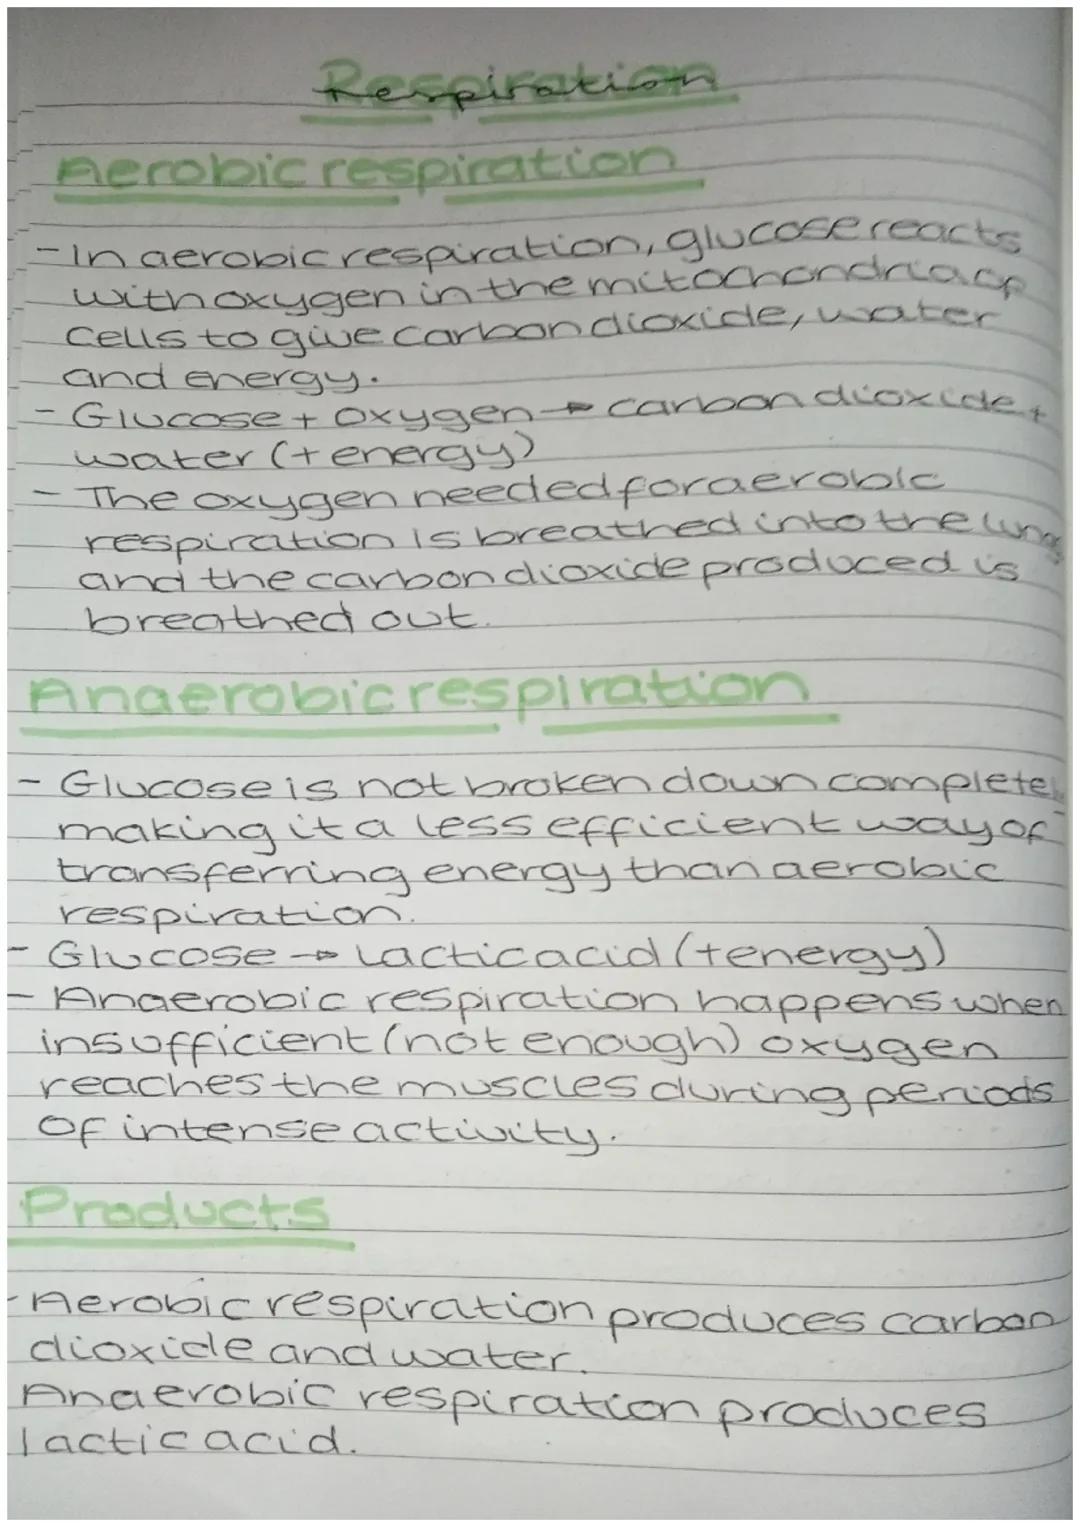 Respiration
Aerobic respiration
- In aerobic respiration, glucose reacts
with oxygen in the mitochondria of
cells to give carbon dioxide, water
and energy.
- Glucose + oxygen → carbon dioxide +
water (+ energy)
- The oxygen needed for aerobic
respiration is breathed into the lungs
and the carbon dioxide produced is
breathed out.
Anaerobic respiration
- Glucose is not broken down completely
making it a less efficient way of
transferring energy than aerobic
respiration.
- Glucose → lactic acid (+ energy)
- Anaerobic respiration happens when
insufficient (not enough) oxygen
reaches the muscles during periods
of intense activity.
Products
- Aerobic respiration produces carbon
dioxide and water.
Anaerobic respiration produces
lactic acid.